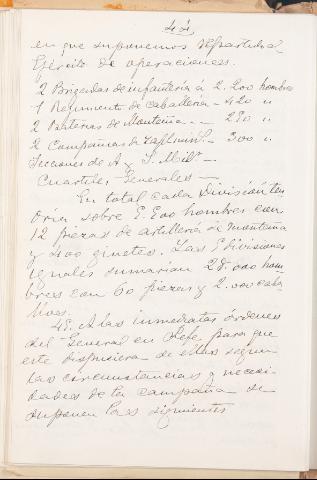 en que suponemos repartido el
Ejército de operaciones.
2 Brigadas de infantería á 2.200 hombres
1 Regimiento de Caballería - 420 "
2 Baterías de Montaña - 280 "
2 Compañias de Zap. Min. - 300 "
Secciones de A y S. Milr -
Cuarteles Generales -
En total cada División ten
dría sobre hombres con
12 piezas de artillería de montaña
y 400 ginetes. Las 5 Divisiones
iguales sumarían 28.000 hom
bres con 60 piezas y 2.000 caba
llos.
A las inmediatas órdenes
del General en Jefe, para que
este dispusiera de ellas segun
las circunstancias y necesi
dades de la campaña se
suponen las siguientes